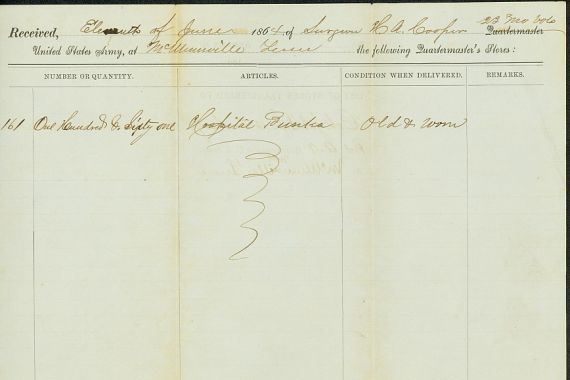 23 Mo Vols
Received, Eleventh of June 1864, of Surgeon H. A. Cooper Quartermaster
United States Army, at McMinnville Tenn the following Quartermaster's Stores:
NUMBER OR QUANTITY. ARTICLES. CONDITION WHEN DELIVERED. REMARKS.
161 One Hundred & Sixty one Hospital Bunks Old & worn